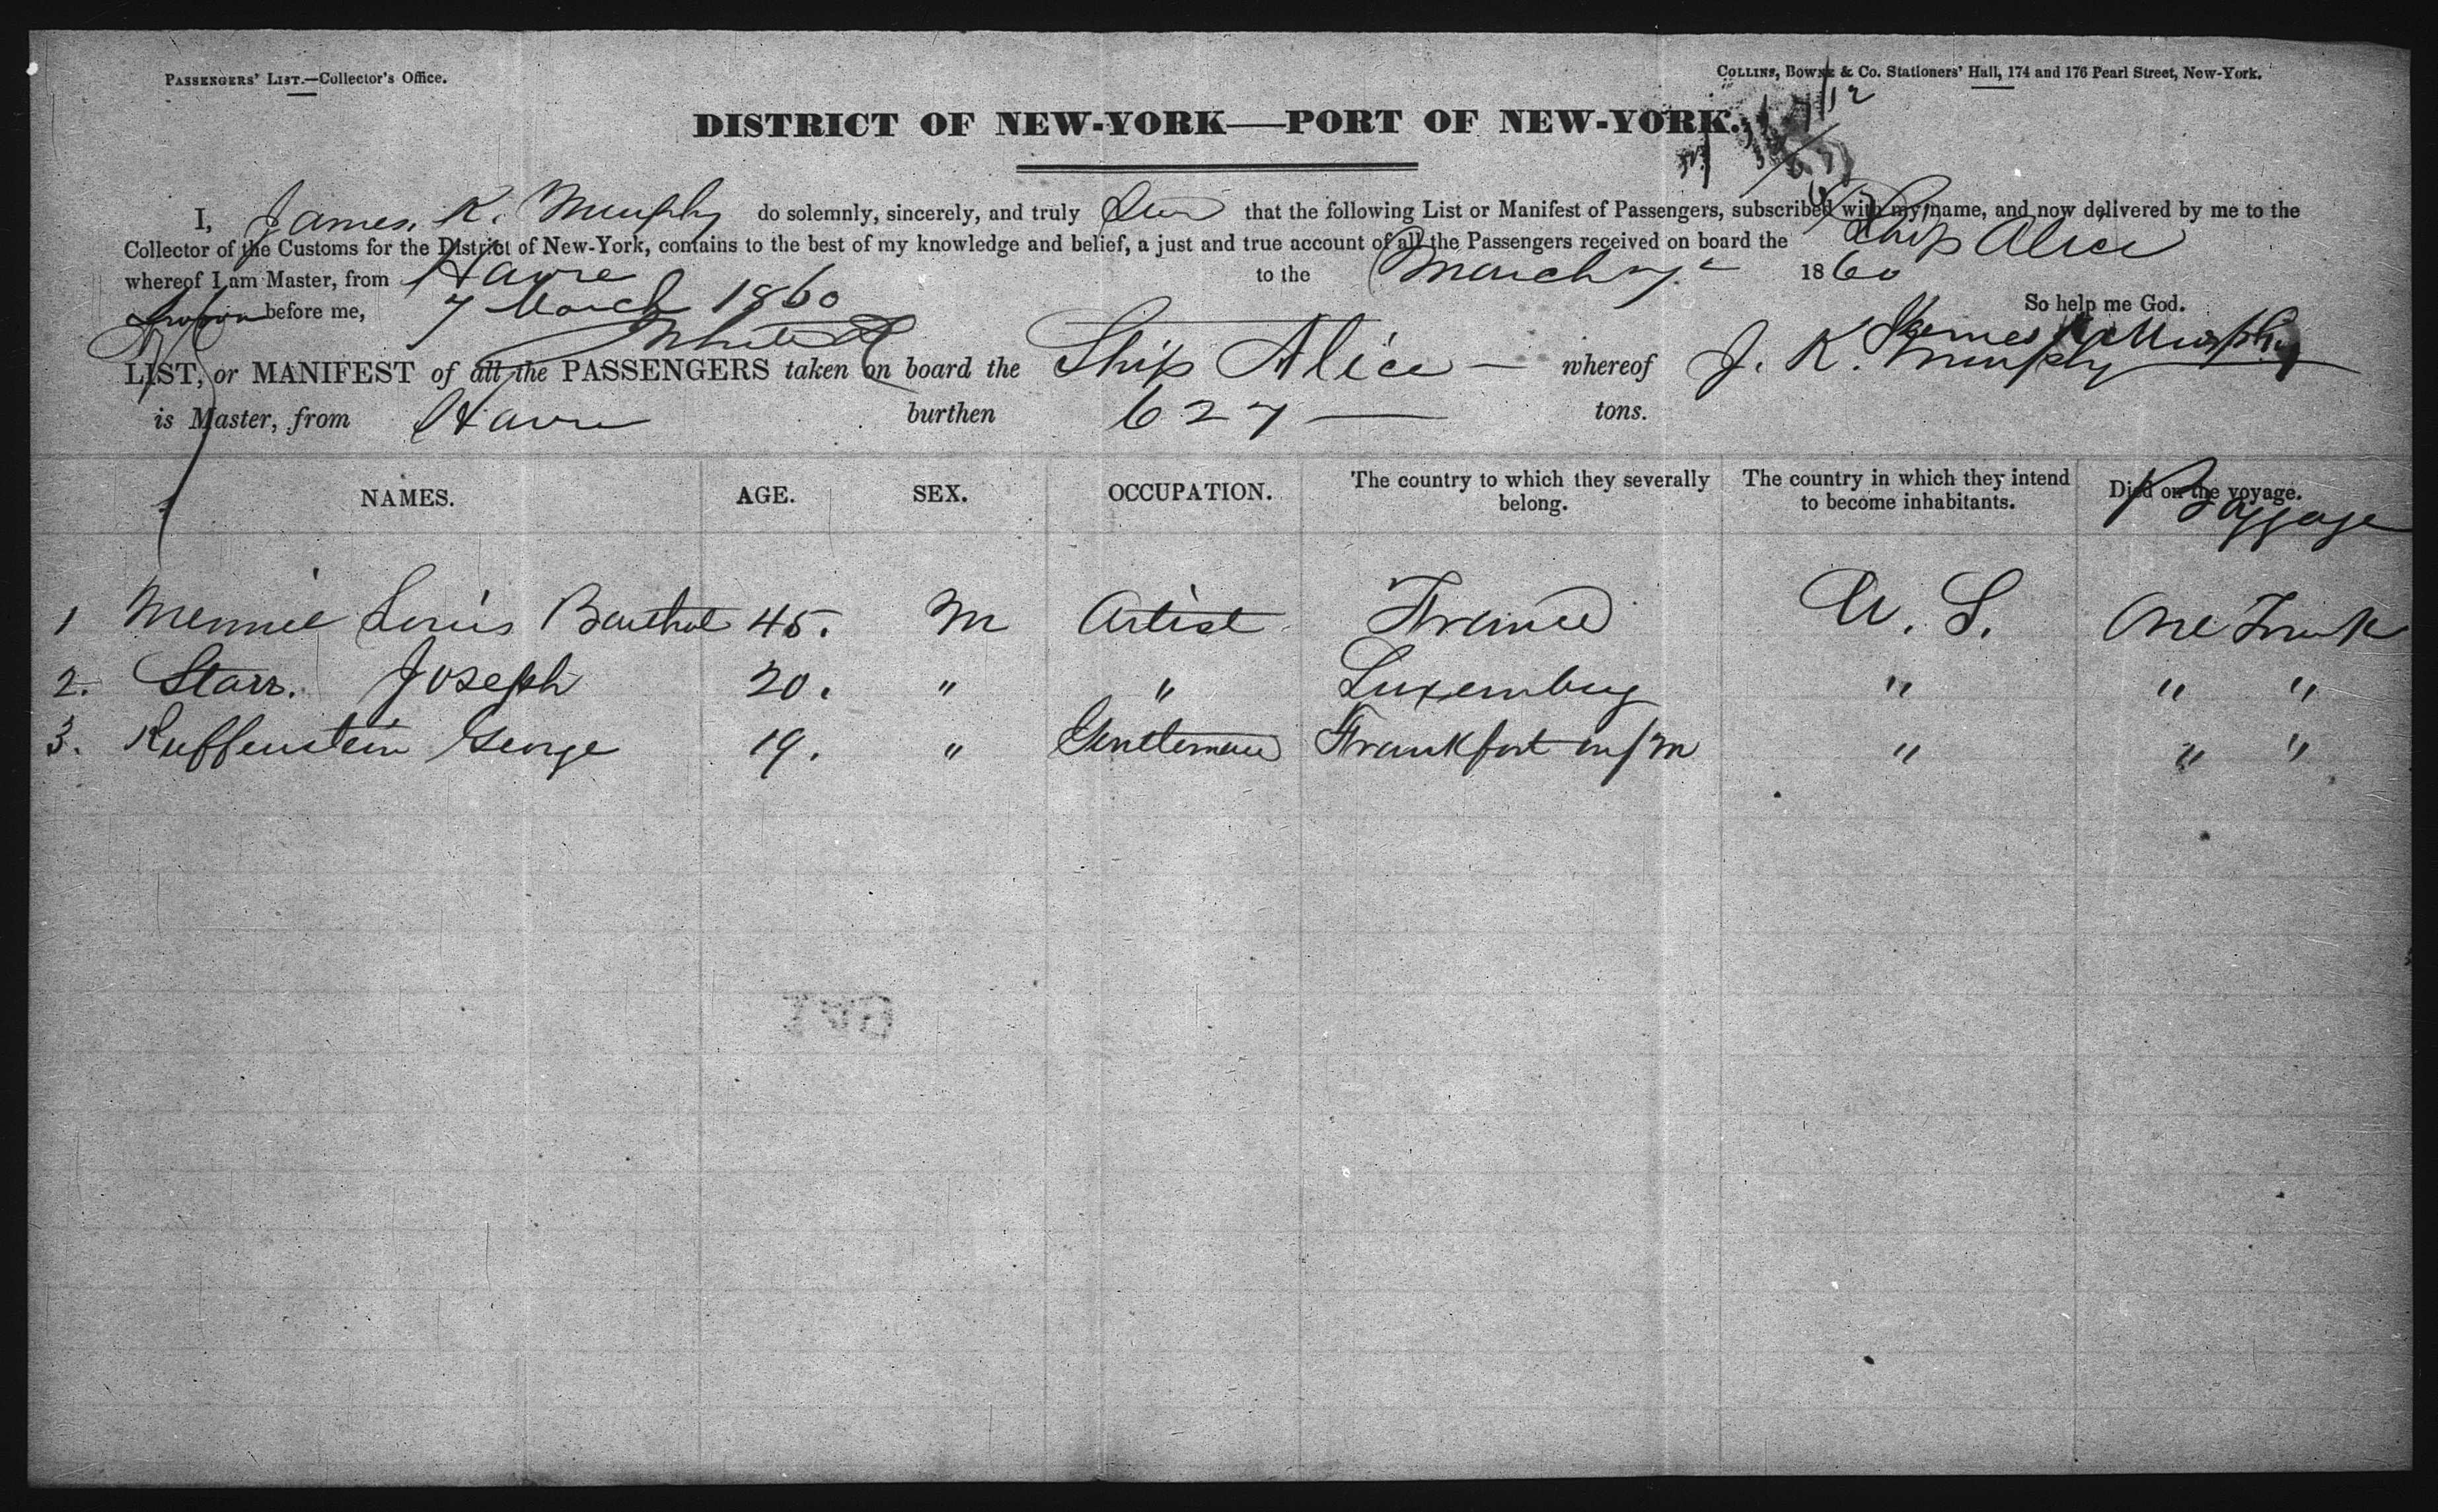 PASSENGERS' LIST.—Collector's Office.
COLLINS, BOWNE & Co. Stationers' Hall, 174 and 176 Pearl Street, New-York.
DISTRICT OF NEW-YORK—PORT OF NEW-YORK.
I, James K. Murphy do solemnly, sincerely, and truly that the following List or Manifest of Passengers, subscribed with my name, and now delivered by me to the
Collector of the Customs for the District of New-York, contains to the best of my knowledge and belief, a just and true account of all the Passengers received on board the Ship Alice
whereof I am Master, from Havre to the March 7 1860
Sworn before me, 7 March 1860 So help me God.
James K Murphy
LIST, or MANIFEST of all the PASSENGERS taken on board the Ship Alice — whereof J. K. Murphy
is Master, from Havre burthen 627 — tons.
NAMES. AGE. SEX. OCCUPATION. The country to which they severally belong. The country in which they intend to become inhabitants. Died on the voyage. Baggage
1 Louis 45. M Artist France U. S. One Trunk
2. Starr. Joseph 20. " " Luxemburg " " "
3. Ruffenstein George 19. " Gentleman Frankfort o/m " " "